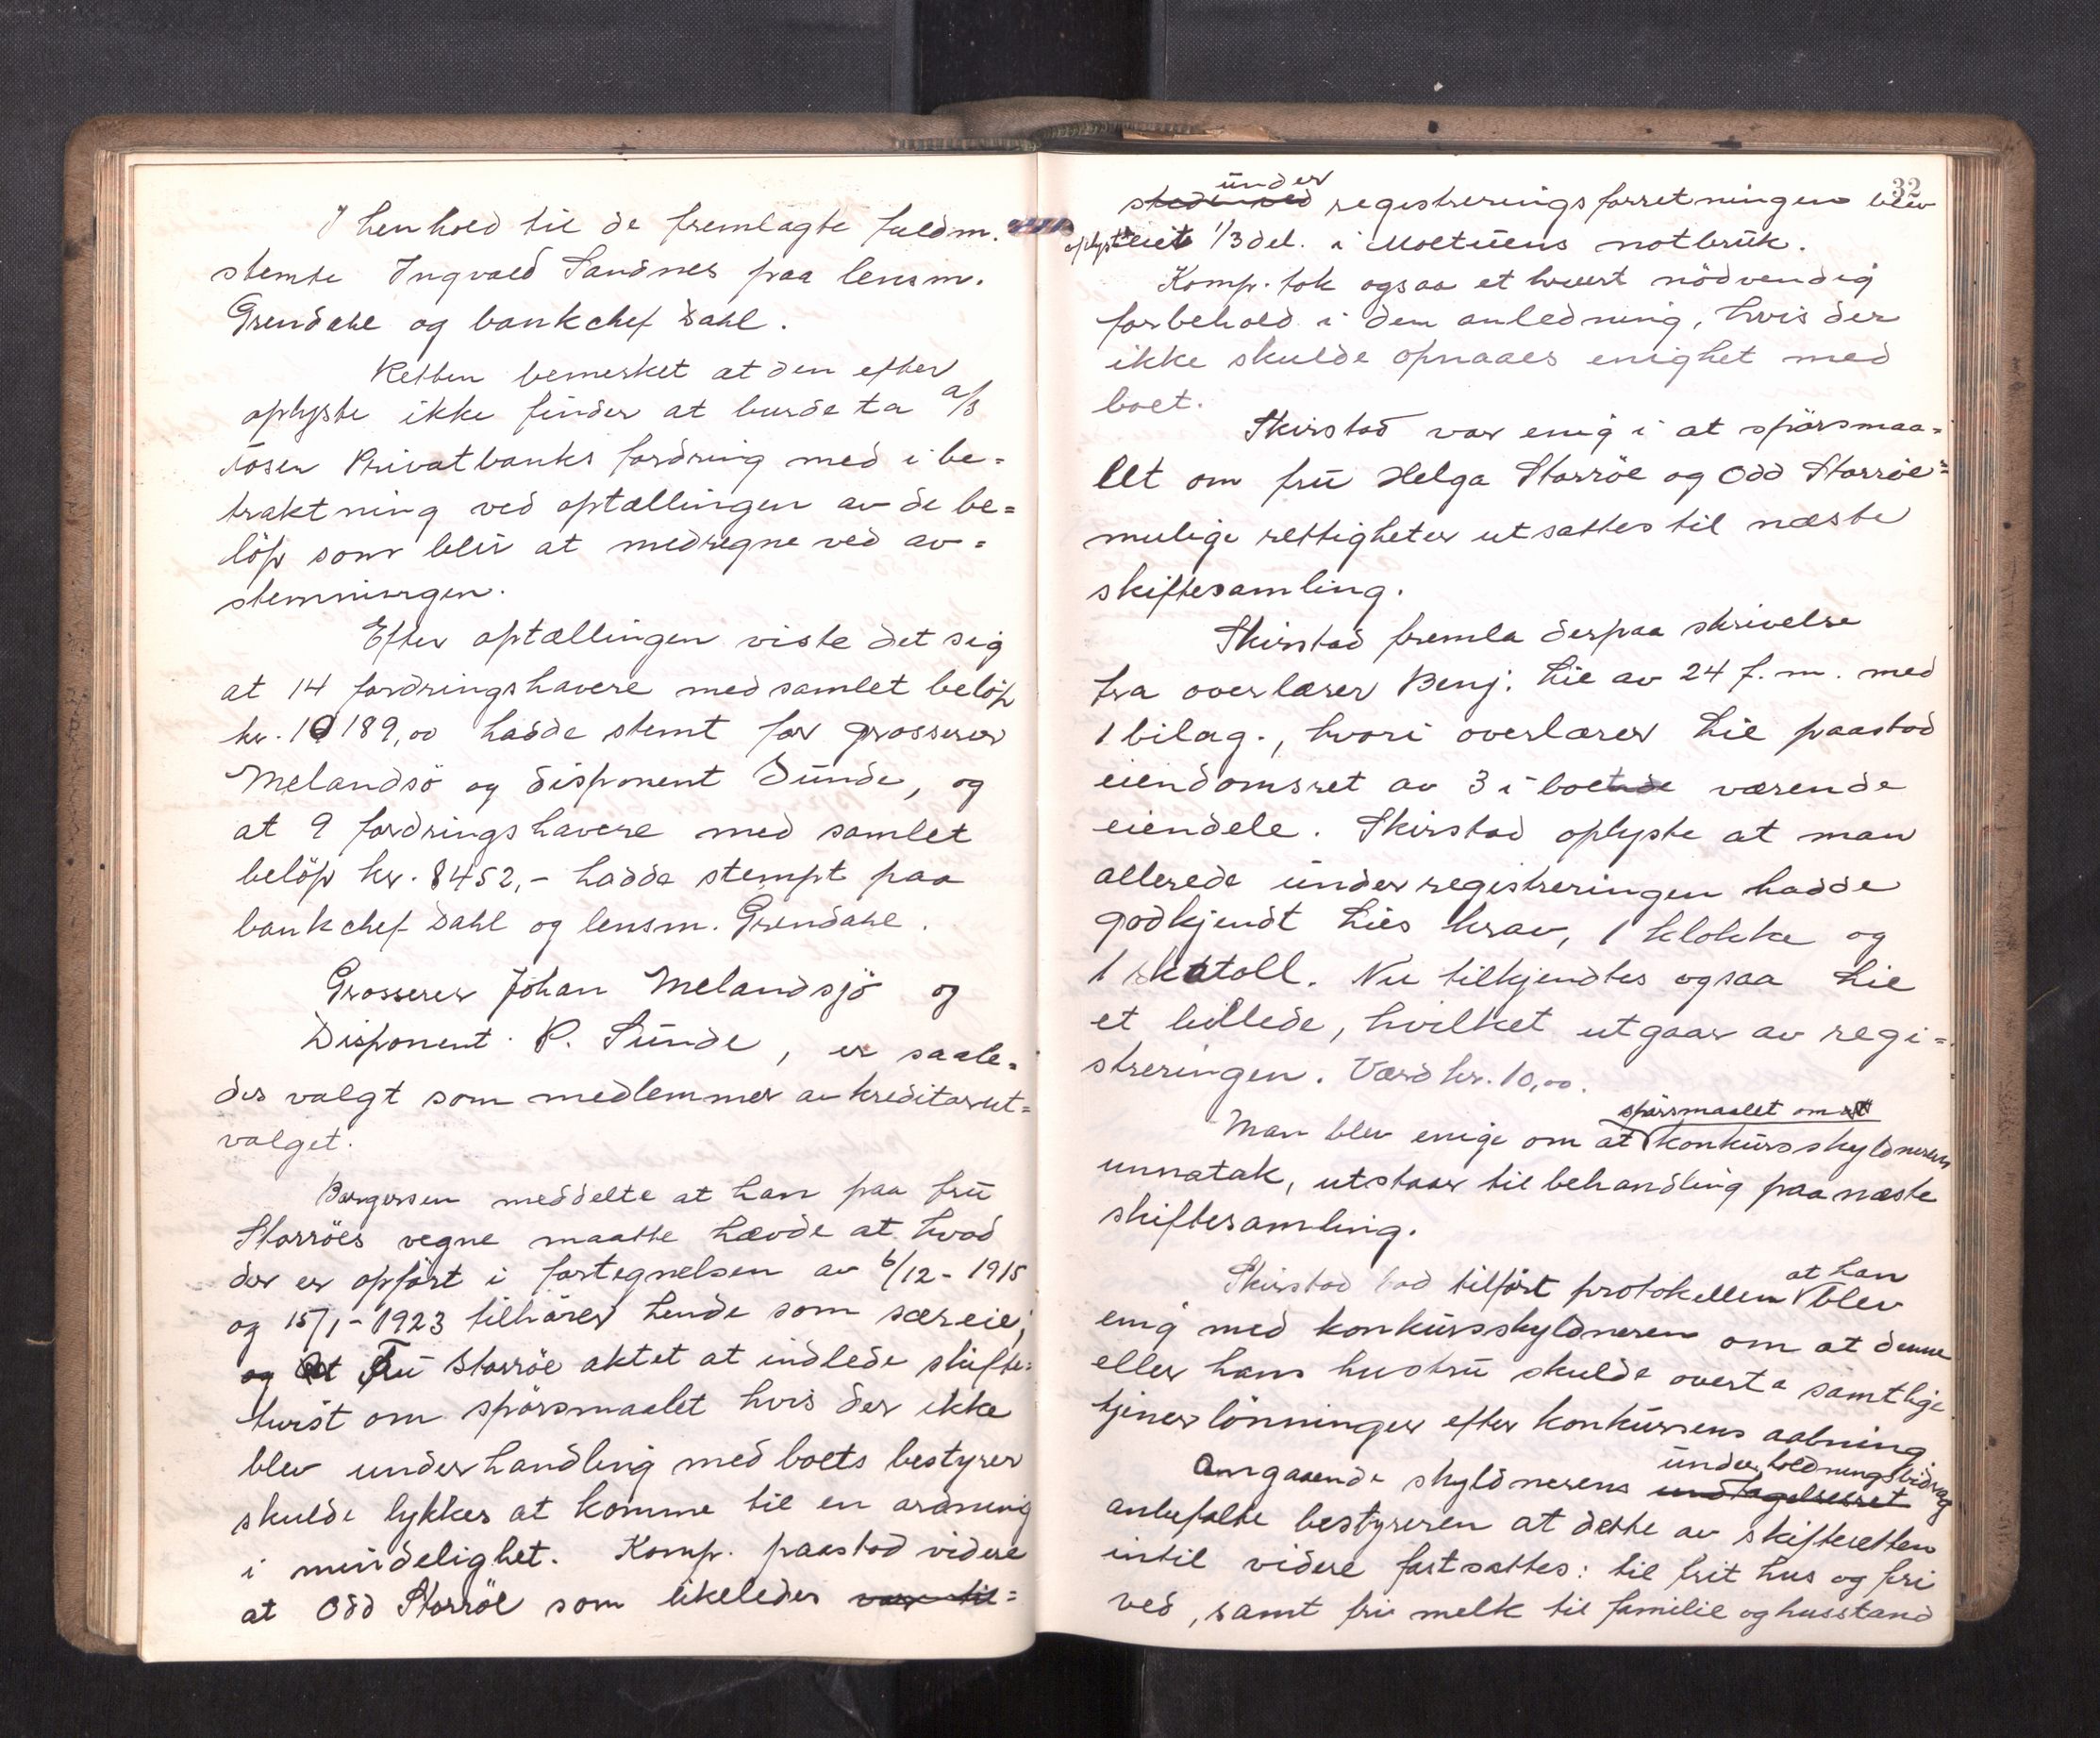 I henhold til de fremlagte fuldm.
stemte Ingvald Sandnes paa lensm.
Grendahl og bankchef Dahl.
Retten bemerket at den efter
oplyste ikke finder at burde ta a/s
Røsen Privatbanks fordring med i be=
traktning ved optællingen av de be=
løp som blir at medregne ved av=
stemningen.
Efter optællingen viste det sig
at 14 fordringshavere med samlet beløp
kr. 10189,00 hadde stemt for grosserer
Melandsø og disponent Sunde, og
at 9 fordringshavere med samlet
beløp kr. 8452,- hadde stempt paa
bankchef Dahl og lensm. Grendahl.
Grosserer Johan Melandsjø og
Disponent P. Sunde, er saale=
des valgt som medlemmer av kreditorut=
valget.
Borgersen meddelte at han paa fru
Storrøes vegne maatte hævde at hvad
der er opført i fortegnelsen av 6/12-1915
og 15/1-1923 tilhører hende som særeie,
og at Fru Storrøe aktet at indlede skifte=
tvist om spørsmaalet hvis der ikke
blev underhandling med boets bestyrer
skulde lykkes at komme til en ordning
i mindelighet. Komp. paastod videre
at Odd Storrøe som likeledes var til=
32
under
stede ved registreringsforretningen blev
oplyst eiet 1/3 del. i Moltuens notbruk.
Komp. tok ogsaa et hvert nødvendig
forbehold i den anledning, hvis der
ikke skulde opnaaes enighet med
boet.
Skirstad var enig i at spørsmaa=
let om fru Helga Storrøe og Odd Storrøe=s
mulige rettigheter utsattes til næste
skiftesamling.
Skirstad fremla derpaa skrivelse
fra overlærer Benj. Lie av 24 f.m. med
1 bilag., hvori overlærer Lie paastod
eiendomsret av 3 i boet værende
eiendele. Skirstad oplyste at man
allerede under registreringen hadde
godkjendt Lies krav, 1 klokke og
1 skatoll. Nu tilkjendtes ogsaa Lie
et billede, hvilket utgaar av regi=
streringen. Værd kr. 10,00.
spørsmaalet om
Man blev enige om at konkursskyldnerens
unnatak, utstaar til behandling paa næste
skiftesamling.
at han
Skirstad bad tilført protokollen blev
enig med konkursskyldneren om at denne
eller hans hustru skulde overta samtlige
tjenerlønninger efter konkursens aabning
underholdningsbidrag
Angaaende skyldnerens undtagelsesret
anbefalte bestyreren at dette av skifteretten
intil videre fastsattes: til frit hus og fri
ved, samt fri melk til familie og husstand